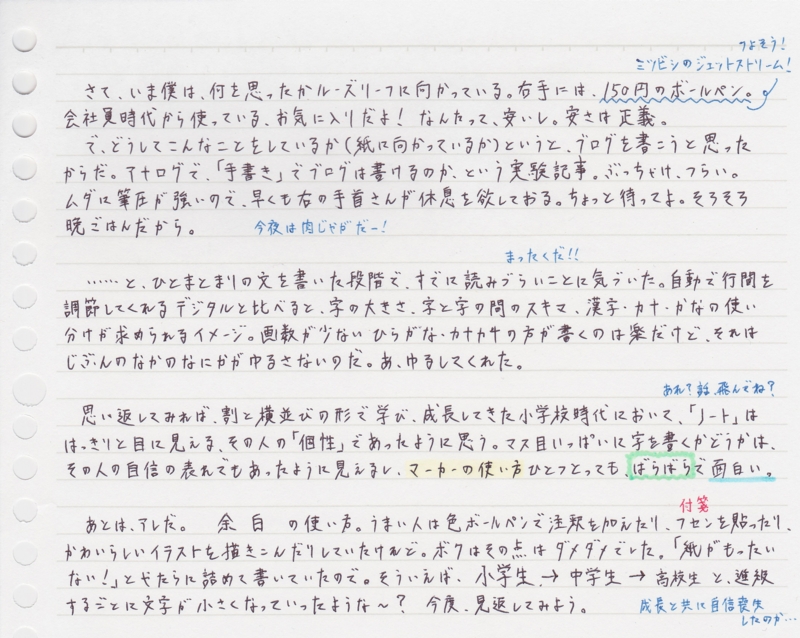 つよそう！
ミツビシのジェットストリーム！
さて、いま僕は、何を思ったかルーズリーフに向かっている。右手には、150円のボールペン。
会社員時代から使っている、お気に入りだよ！ なんたって、安いし。安さは正義。
で、どうしてこんなことをしているか（紙に向かっているか）というと、ブログを書こうと思った
からだ。アナログで、「手書き」でブログは書けるのか、という実験記事。ぶっちゃけ、つらい。
ムダに筆圧が強いので、早くも右の手首さんが休息を欲しておる。ちょっと待ってよ。そろそろ
晩ごはんだから。 今夜は肉じゃがだー！
まったくだ！！
……と、ひとまとまりの文を書いた段階で、すでに読みづらいことに気づいた。自動で行間を
調節してくれるデジタルと比べると、字の大きさ、字と字の間のスキマ、漢字・カナ・かなの使い
分けが求められるイメージ。画数が少ないひらがな・カタカナの方が書くのは楽だけど、それは
じぶんのなかのなにかがゆるさないのだ。あ、ゆるしてくれた。
あれ？話、飛んでね？
思い返してみれば、割と横並びの形で学び、成長してきた小学校時代において、「ノート」は
はっきりと目に見える、その人の「個性」であったように思う。マス目いっぱいに字を書くかどうかは、
その人の自信の表れでもあったように見えるし、マーカーの使い方ひとつとっても、ばらばらで面白い。
付箋
あとは、アレだ。 余白 の使い方。うまい人は色ボールペンで注釈を加えたり、フセンを貼ったり、
かわいらしいイラストを描きこんだりしていたけれど。ボクはその点はダメダメでした。「紙がもったい
ない！」とやたらに詰めて書いていたので。そういえば、小学生→中学生→高校生と、進級
するごとに文字が小さくなっていったような〜？ 今度、見返してみよう。 成長と共に自信喪失
したのか…